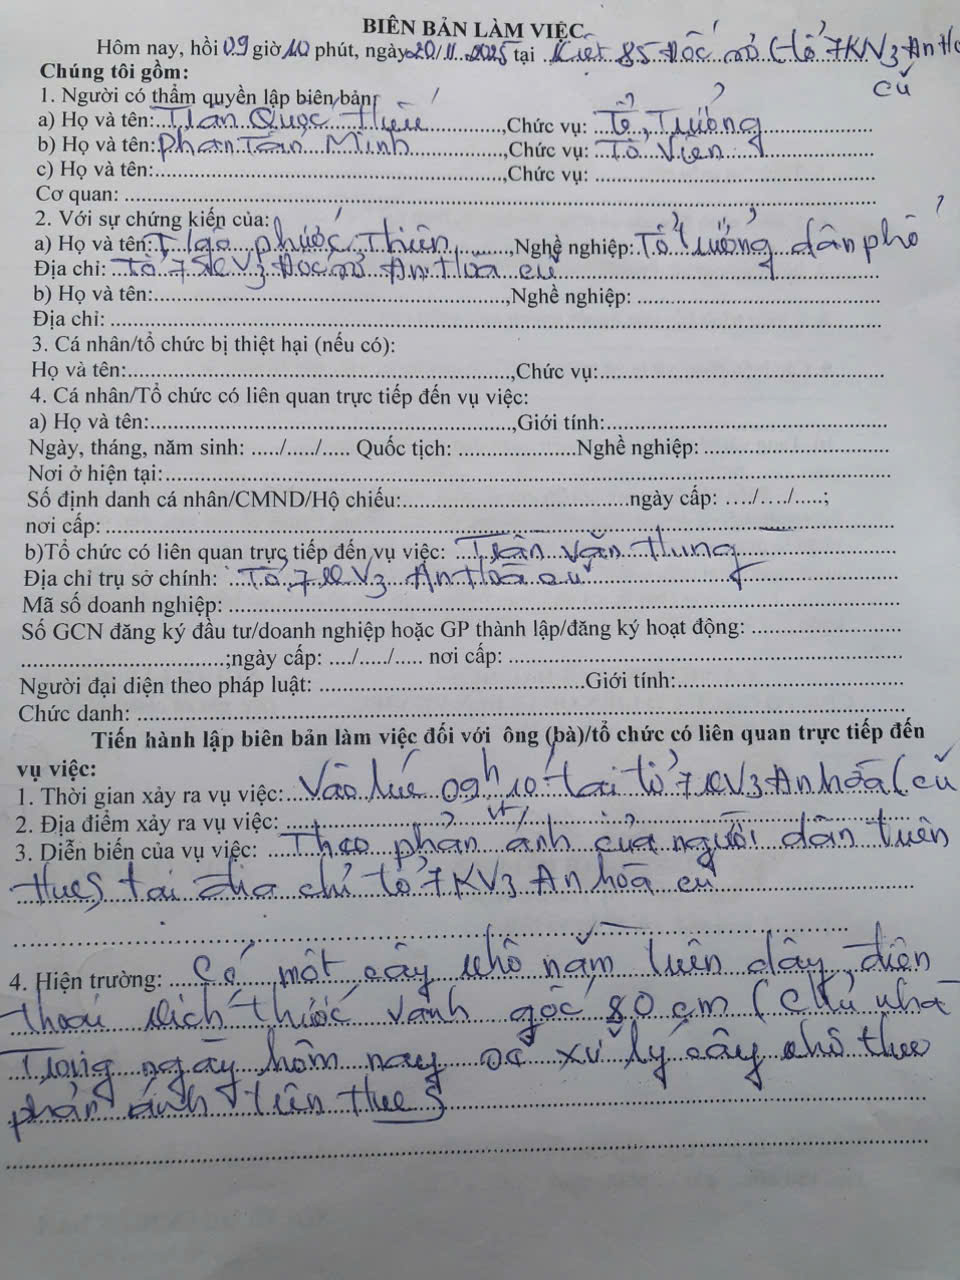 BIÊN BẢN LÀM VIỆC
Hôm nay, hồi 09 giờ 10 phút, ngày 20/11..2025 tại Kiệt 85 Đốc sơ (tổ 7KV3 An Hòa
cũ
Chúng tôi gồm:
1. Người có thẩm quyền lập biên bản:
a) Họ và tên: Trần Quốc Hiếu, Chức vụ: Tổ Trưởng
b) Họ và tên: Phan Tấn Minh, Chức vụ: Tổ Viên
c) Họ và tên:, Chức vụ:
Cơ quan:
2. Với sự chứng kiến của:
a) Họ và tên: Ngô phước Thiên, Nghề nghiệp: Tổ trưởng dân phố
Địa chỉ: Tổ 7 KV3 Đốc sơ An Hòa cũ
b) Họ và tên:, Nghề nghiệp:
Địa chỉ:
3. Cá nhân/tổ chức bị thiệt hại (nếu có):
Họ và tên:, Chức vụ:
4. Cá nhân/Tổ chức có liên quan trực tiếp đến vụ việc:
a) Họ và tên:, Giới tính:
Ngày, tháng, năm sinh: ...../...../..... Quốc tịch: Nghề nghiệp:
Nơi ở hiện tại:
Số định danh cá nhân/CMND/Hộ chiếu: ngày cấp: ..../..../.....;
nơi cấp:
b)Tổ chức có liên quan trực tiếp đến vụ việc: Trần Văn Hưng
Địa chỉ trụ sở chính: Tổ 7 KV3 An Hoà cũ
Mã số doanh nghiệp:
Số GCN đăng ký đầu tư/doanh nghiệp hoặc GP thành lập/đăng ký hoạt động:
;ngày cấp: ..../...../..... nơi cấp:
Người đại diện theo pháp luật: Giới tính:
Chức danh:
Tiến hành lập biên bản làm việc đối với ông (bà)/tổ chức có liên quan trực tiếp đến
vụ việc:
1. Thời gian xảy ra vụ việc: Vào lúc 09h 10' tại tổ 7 KV3 An hòa (cũ
2. Địa điểm xảy ra vụ việc:
3. Diễn biến của vụ việc: Theo phản ánh của người dân trên
HueS tại địa chỉ tổ 7KV3 An hòa cũ
4. Hiện trường: Có một cây nhô nằm trên dây điện
thoại kích thước vanh gốc 80 cm (Chủ nhà
Trong ngày hôm nay đã xử lý cây nhô theo
phản ánh trên HueS